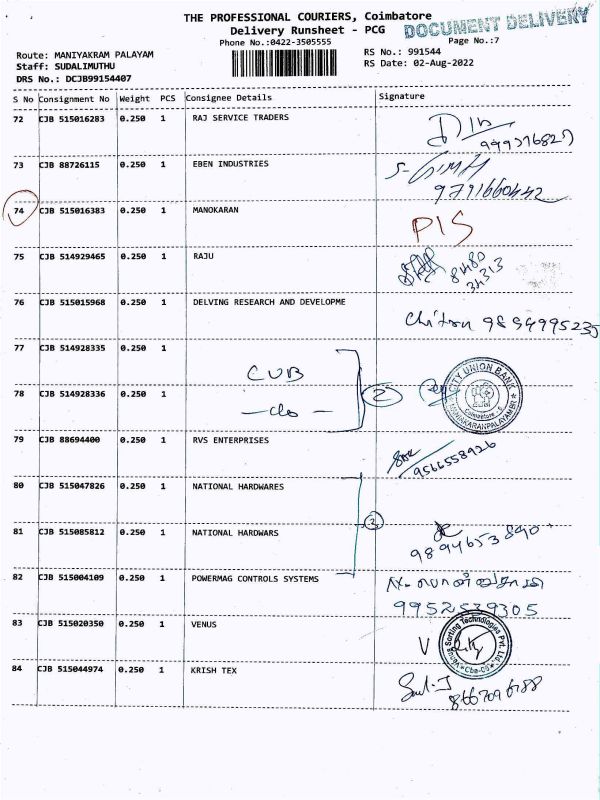 THE PROFESSIONAL COURIERS, Coimbatore
DOCUMENT DELIVERY
Delivery Runsheet - PCG
Phone No.:0422-3505555
Page No.:7
Route: MANIYAKRAM PALAYAM
RS No.: 991544
Staff: SUDALIMUTHU
RS Date: 02-Aug-2022
DRS No.: DCJB99154407
S No Consignment No Weight PCS Consignee Details Signature
72 CJB 515016283 0.250 1 RAJ SERVICE TRADERS
73 CJB 88726115 0.250 1 EBEN INDUSTRIES
9791660442
74 CJB 515016383 0.250 1 MANOKARAN
PIS
75 CJB 514929465 0.250 1 RAJU
76 CJB 515015968 0.250 1 DELVING RESEARCH AND DEVELOPME
Chitra 9894995235
77 CJB 514928335 0.250 1
CUB
2
CITY UNION BANK
78 CJB 514928336 0.250 1
79 CJB 88694400 0.250 1 RVS ENTERPRISES
9566558926
80 CJB 515047826 0.250 1 NATIONAL HARDWARES
81 CJB 515085812 0.250 1 NATIONAL HARDWARS
9894653890
82 CJB 515004109 0.250 1 POWERMAG CONTROLS SYSTEMS
9952539305
83 CJB 515020350 0.250 1 VENUS
Venus Sorting Technologies Pvt. Ltd
84 CJB 515044974 0.250 1 KRISH TEX